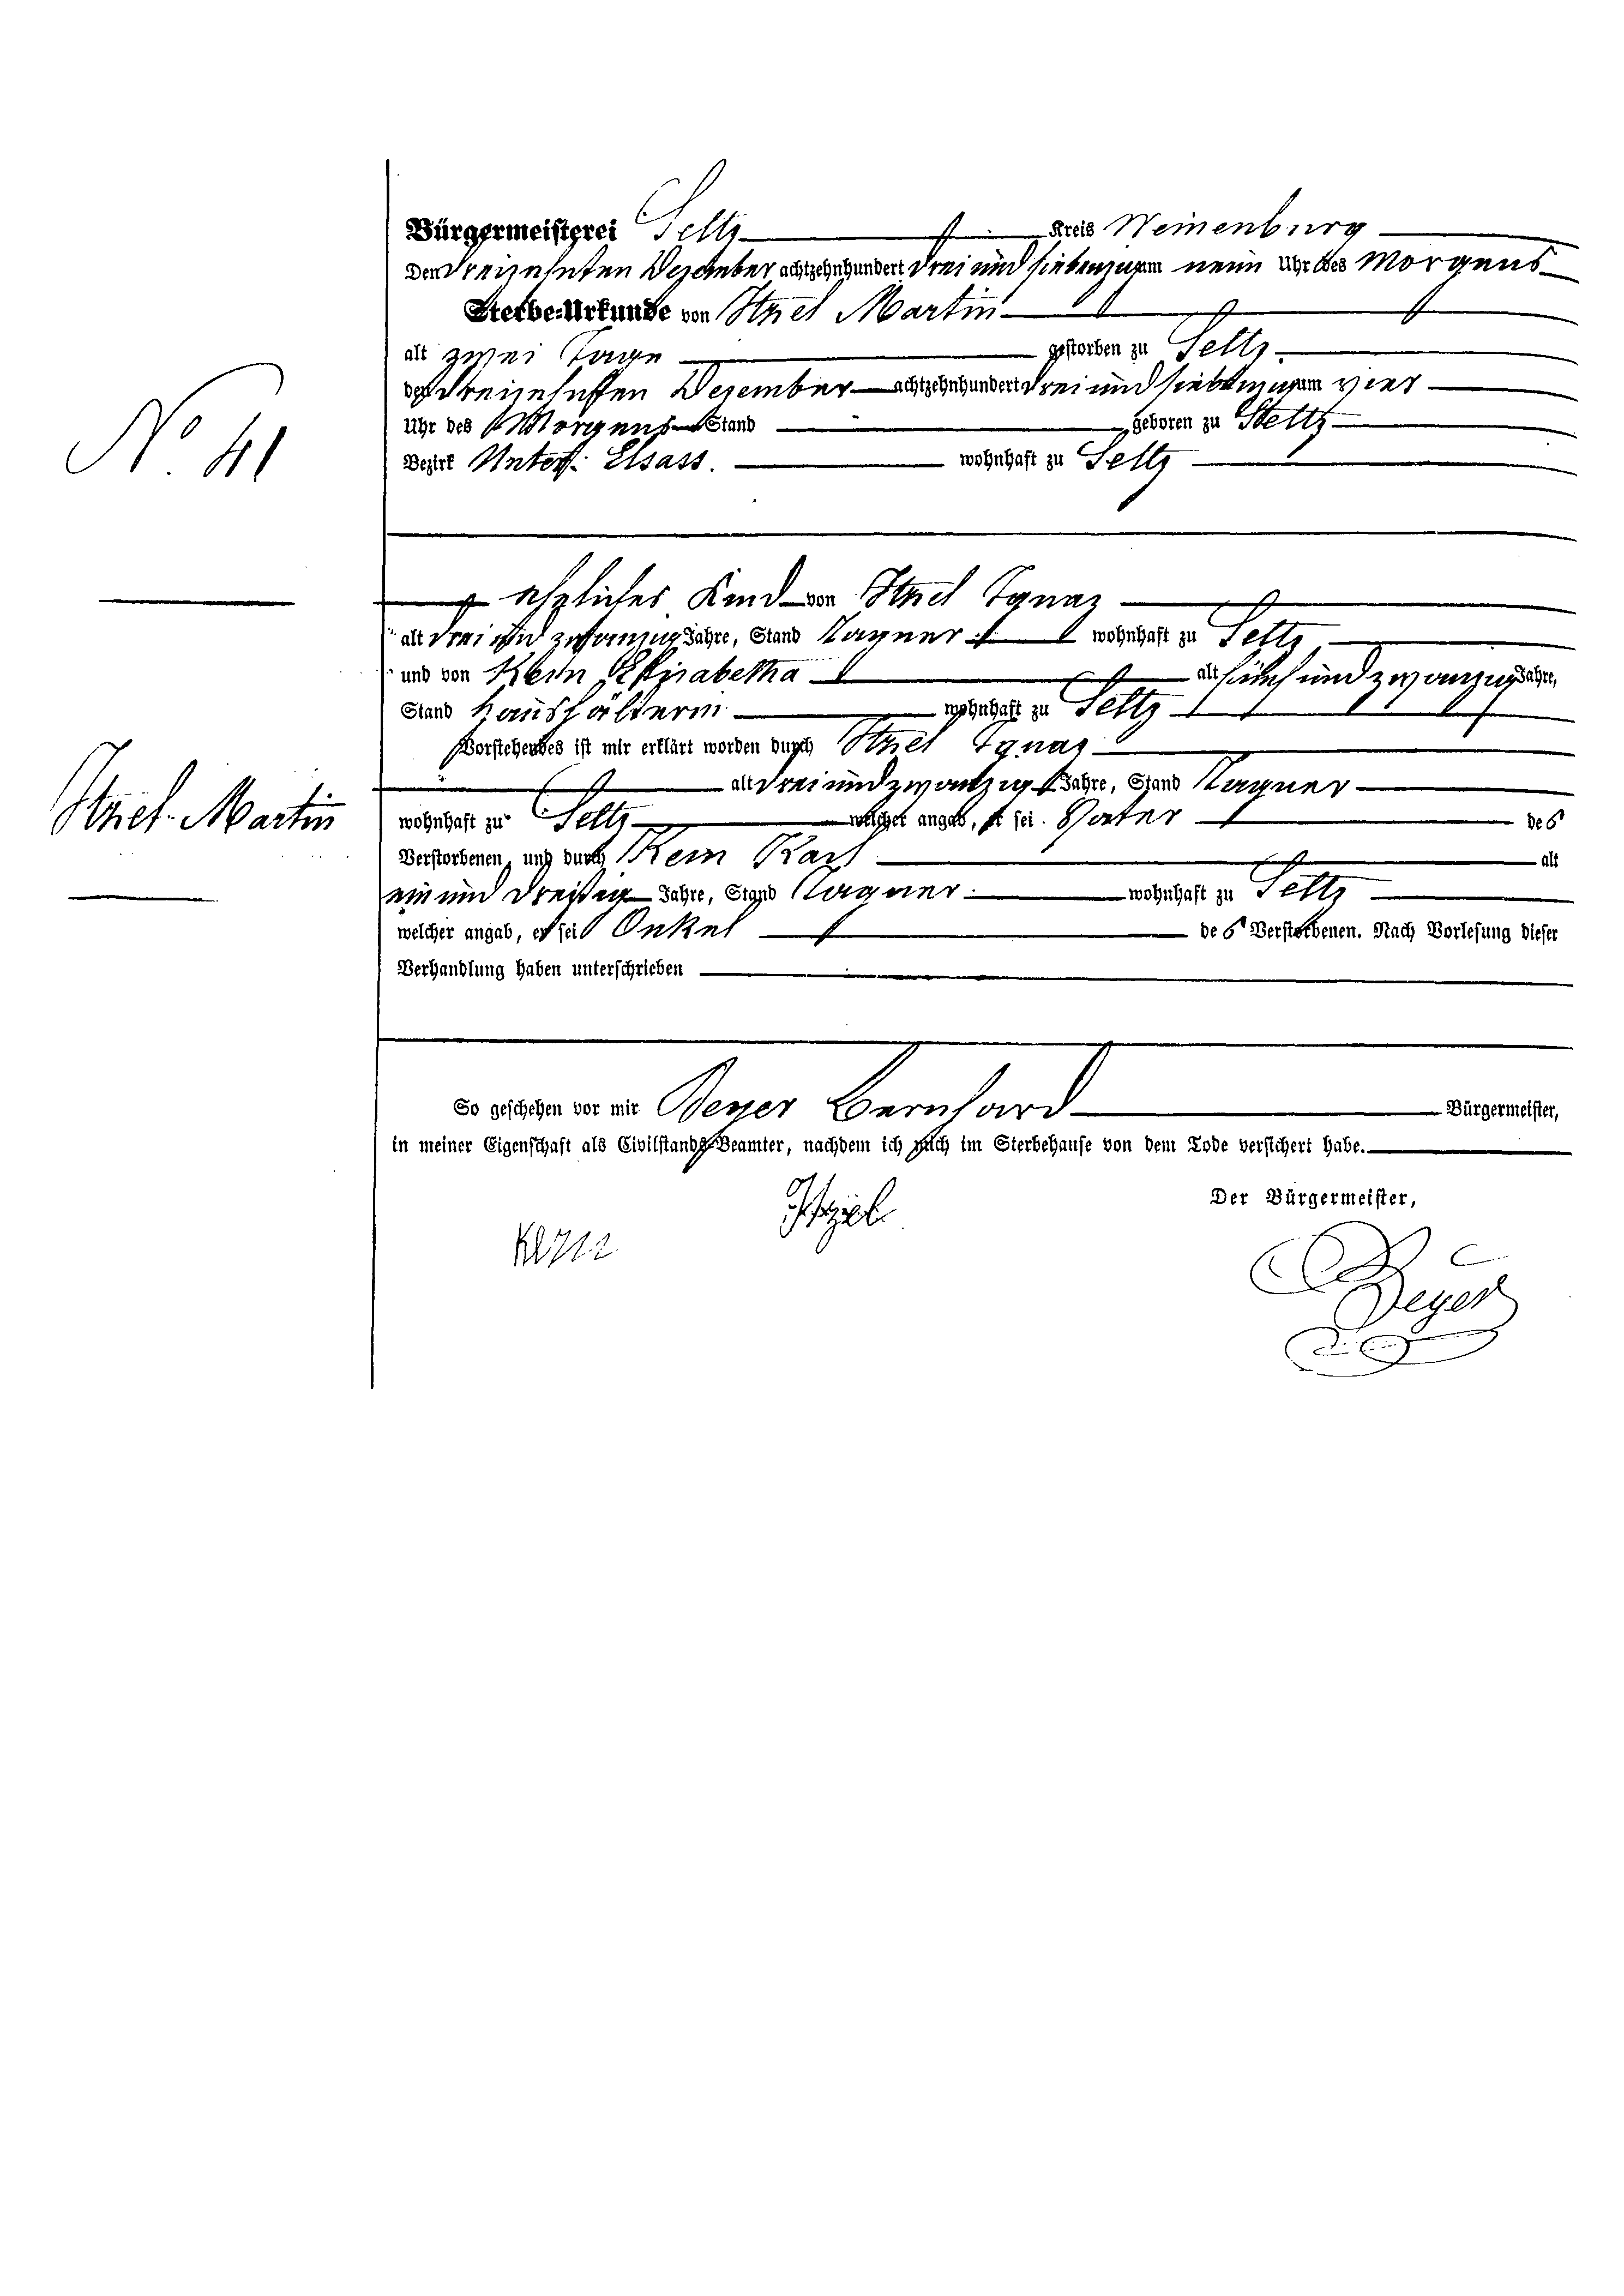 Bürgermeisterei Seltz Kreis Weissenburg
Den dreizehnten Dezember achtzehnhundert drei und siebenzig um neun Uhr des Morgens
Sterbe-Urkunde von Striel Martin
alt zwei Tage gestorben zu Seltz
den dreizehnten Dezember achtzehnhundert drei und siebenzig um vier
Uhr des Morgens Stand geboren zu Seltz
Bezirk Unter-Elsass. wohnhaft zu Seltz
N° 41
eheliches Kind von Ignaz
alt drei und zwanzig Jahre, Stand Tagner wohnhaft zu Seltz
und von Kern Elisabetha alt fünf und zwanzig Jahre,
Stand Haushälterin wohnhaft zu Seltz
Vorstehendes ist mir erklärt worden durch Ignaz
alt drei und zwanzig Jahre, Stand Tagner
Martin
wohnhaft zu Seltz welcher angab, er sei Vater des
Verstorbenen, und durch Kern Karl alt
ein und dreißig Jahre, Stand Tagner wohnhaft zu Seltz
welcher angab, er sei Onkel des Verstorbenen. Nach Vorlesung dieser
Verhandlung haben unterschrieben
So geschehen vor mir Beyer Bernhard Bürgermeister,
in meiner Eigenschaft als Civilstands-Beamter, nachdem ich mich im Sterbehause von dem Tode versichert habe.
Der Bürgermeister,
Kern
Beyer